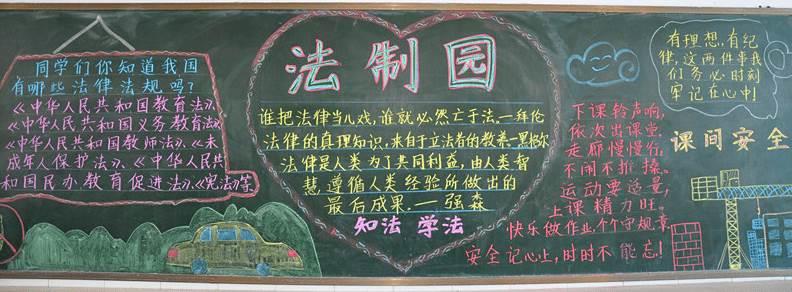 同学们你知道我国
有哪些法律法规吗?
《中华人民共和国教育法》、
《中华人民共和国义务教育法》
《中华人民共和国教师法》、《未
成年人保护法》、《中华人民共
和国民办教育促进法》、《宪法》等
法制园
谁把法律当儿戏,谁就必然亡于法.—拜伦
法律的真理知识,来自于立法者的教养—黑格尔
法律是人类为了共同利益,由人类智
慧遵循人类经验所做出的
最后成果.—强森
知法 学法
有理想,有纪
律,这两件事我
们务必时刻
牢记在心中!
课间安全
下课铃声响,
依次出课堂.
走廊慢慢行,
不闹不推搡。
运动要适量,
上课精力旺。
快乐做作业,个个守规章,
安全记心上,时时不能忘!